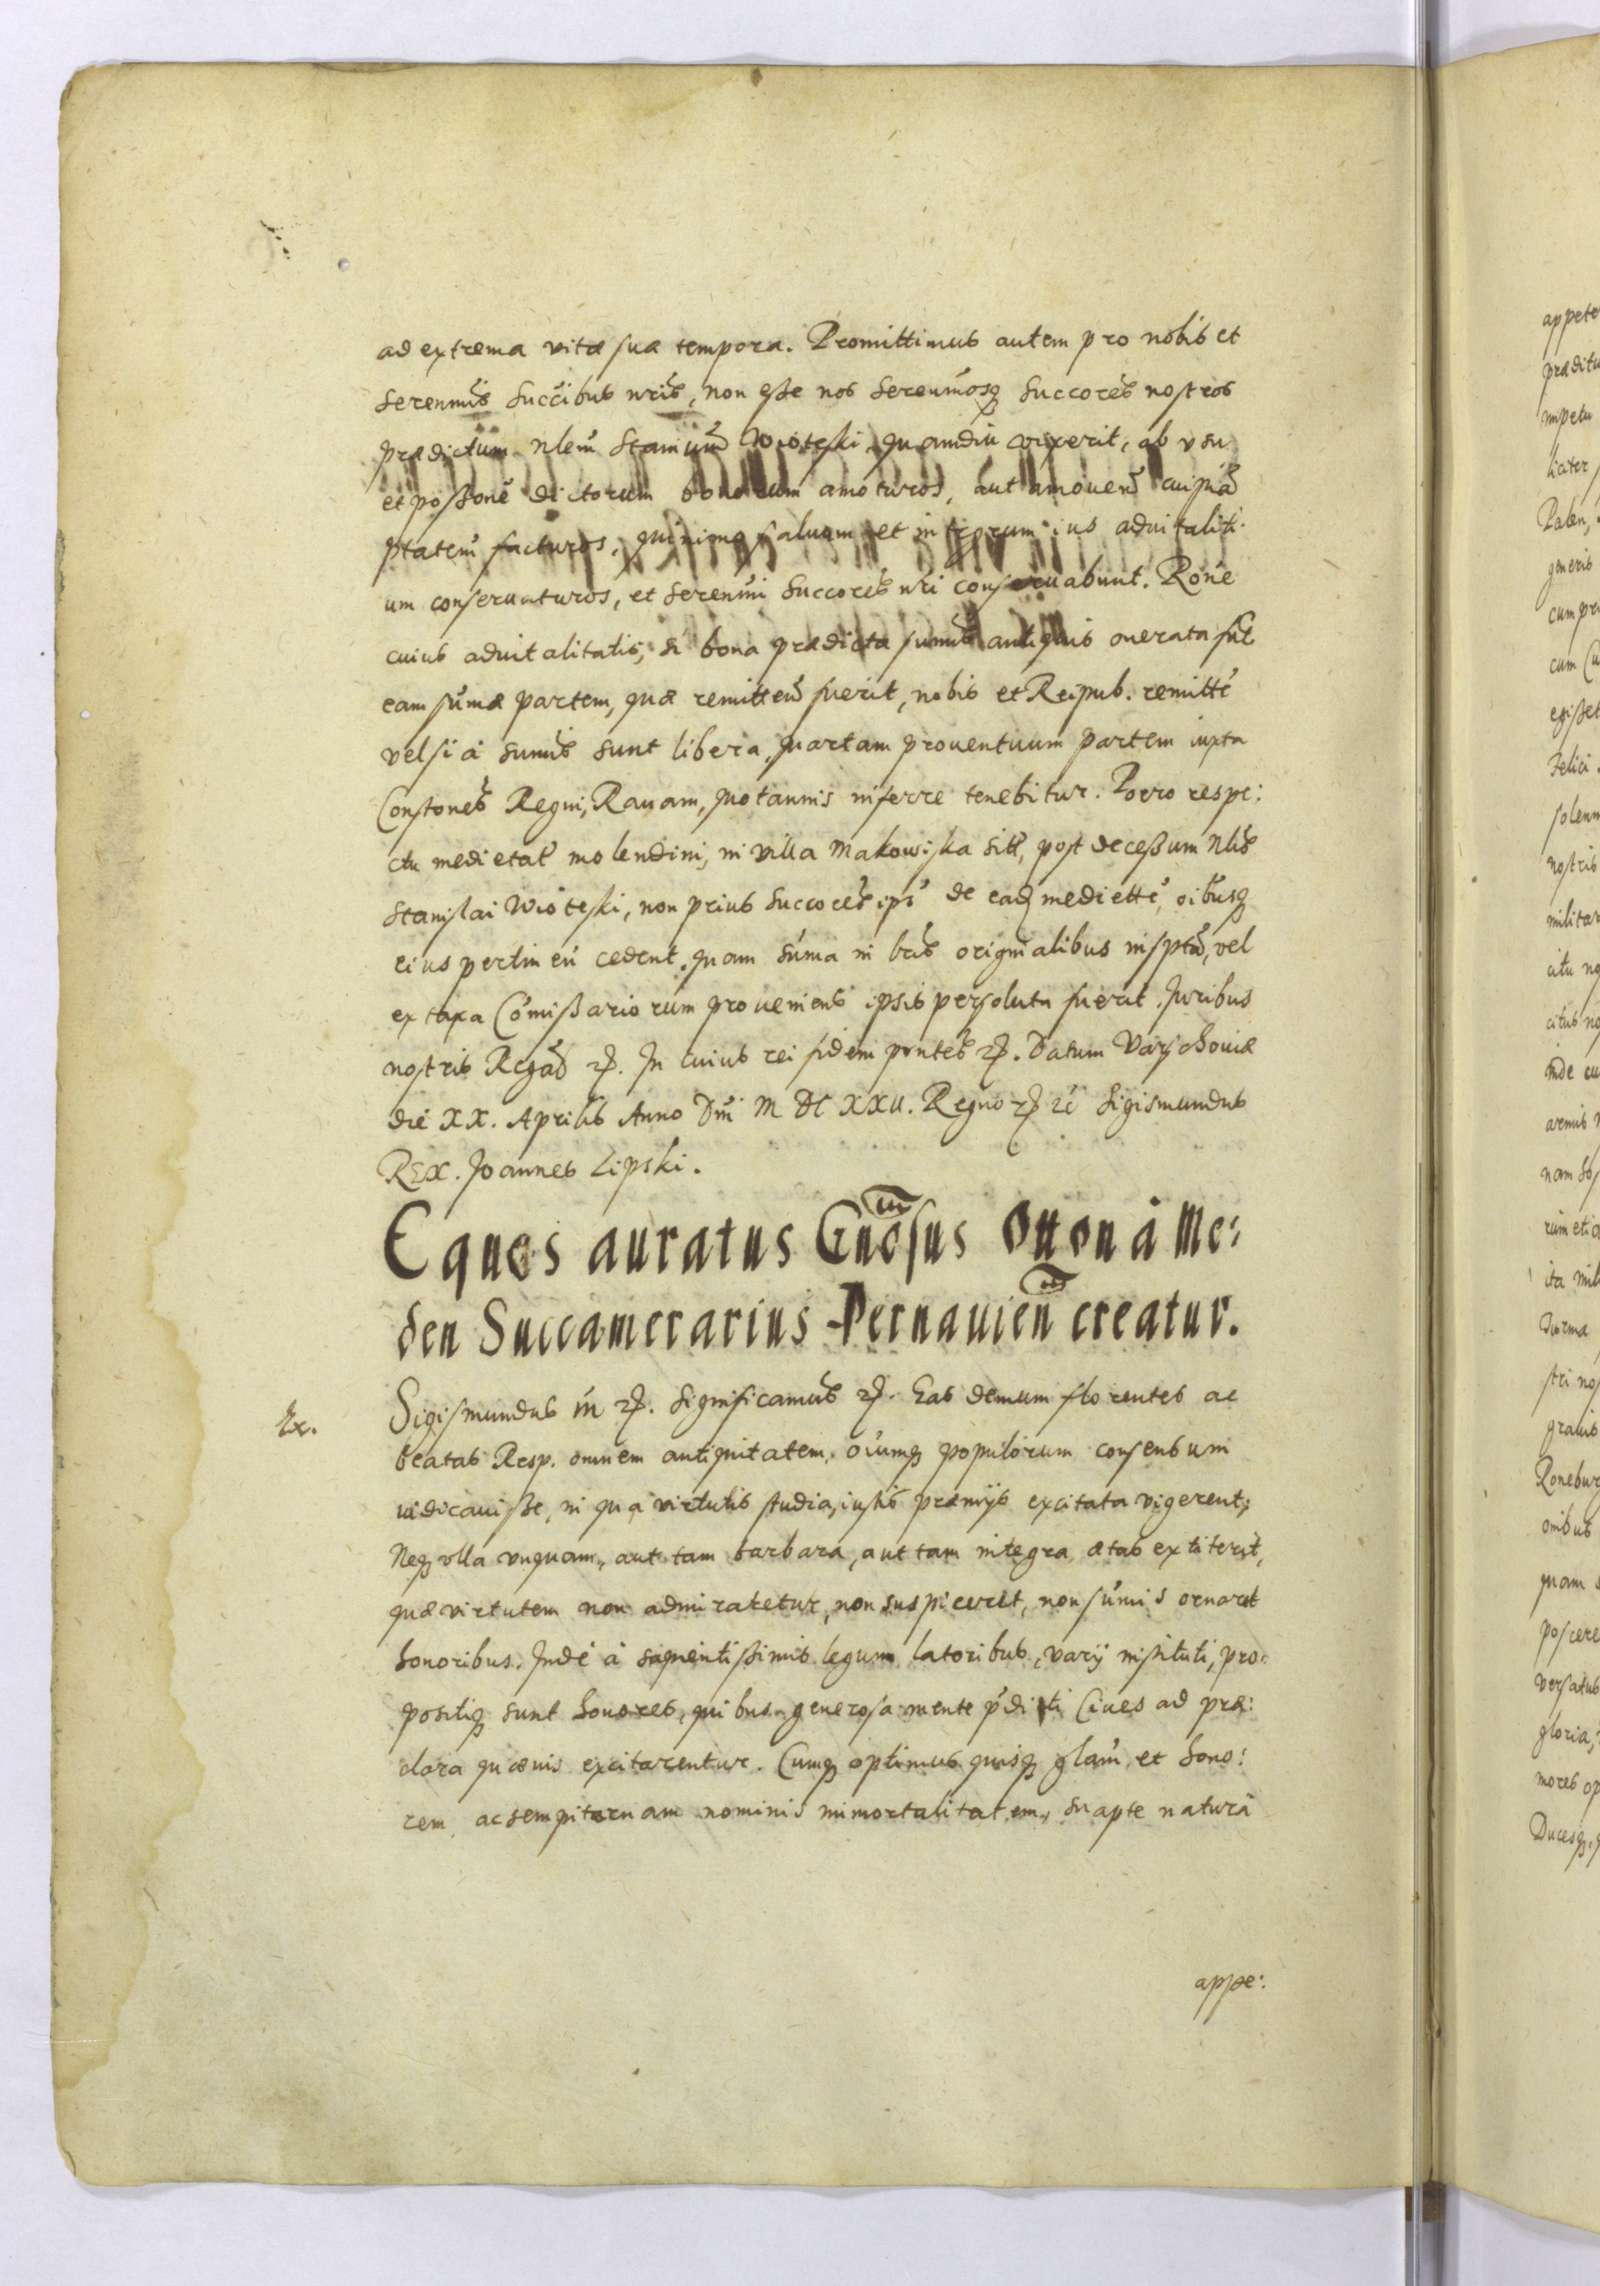 ad extrema vitæ suæ tempora. Promittimus autem pro nobis et
Serenmis Succibus nris, non esse nos Serenmosq Succores nostros
prædictum Nlem Stanium Wioteski quamdiu vixerit, ab vsu
et possone dictorum bonorum amoturos, aut amouen cuipiã
ptatem facturos, quinimo saluum et integrum ius aduitaliti:
um conseruaturos, et Serenmi Succores nri conseruabunt. Rone
cuius aduitalitatis, si bona prædicta sumis antiquis onerata sut
eam sumæ partem, quæ remitten fuerit, nobis et Reipub. remitte
vel si à sumis sunt libera, quartam prouentuum partem iuxta
Constones Regni, Rauam, quotannis inferre tenebitur. Porro respe:
ctu medietat molendini, in villa Makowiska sitt, post decessum Nlis
Stanislai Wioteski, non prius Succores ips de ead mediette, oibusq
eius pertinen cedent, quam suma in lris originalibus inspta, vel
ex taxa Comissariorum proueniens ipsis persoluta fuerit. Juribus
nostris Regaᷓ etc. In cuius rei fidem pntes etc. Datum Varschouiæ
die XX. Aprilis Anno Dni M DC XXV. Regno etc etc Sigismundus
REX. Joannes Lipski.
Eques auratus Gnosus Otton à Me:
den Succamerarius Pernauien creatur.
Ex.
Sigismundus m etc. Significamus etc. Eas demum florentes ac
beatas Resp. omnem antiquitatem, oiumq populorum consensum
iudicauisse, in qua virtutis studia, iustis præmijs excitata vigerent;
Neq vlla vnquam, aut tam barbara, aut tam integra ætas extiterit,
quæ virtutem non admiraretur, non suspiceret, non sumis ornaret
honoribus. Inde à sapientissimis legum latoribus, varij instituti, pro:
positiq sunt honores, quibus generosa mente pditi Ciues ad præ:
clara quæuis excitarentur. Cumq optimus quisq glam et hono:
rem ac sempiternam nominis immortalitatem, suapte natura
appe: